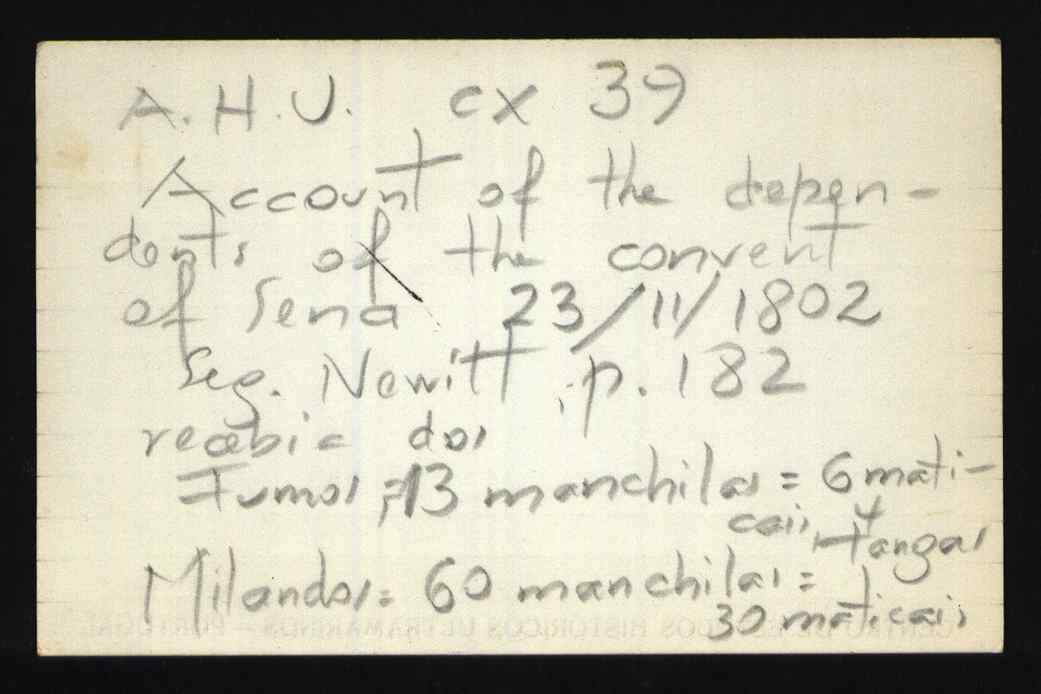 A. H. U. cx 39
Account of the depen-
dents of the convent
of Sena 23/11/1802
Seg. Newitt, p. 182
recebia dos
Fumos, 13 manchilas = 6 mati-
cais, 4
tangas
Milandos = 60 manchilas =
30 maticais
CENTRO DE ESTUDOS HISTÓRICOS ULTRAMARINOS — PORTUGAL